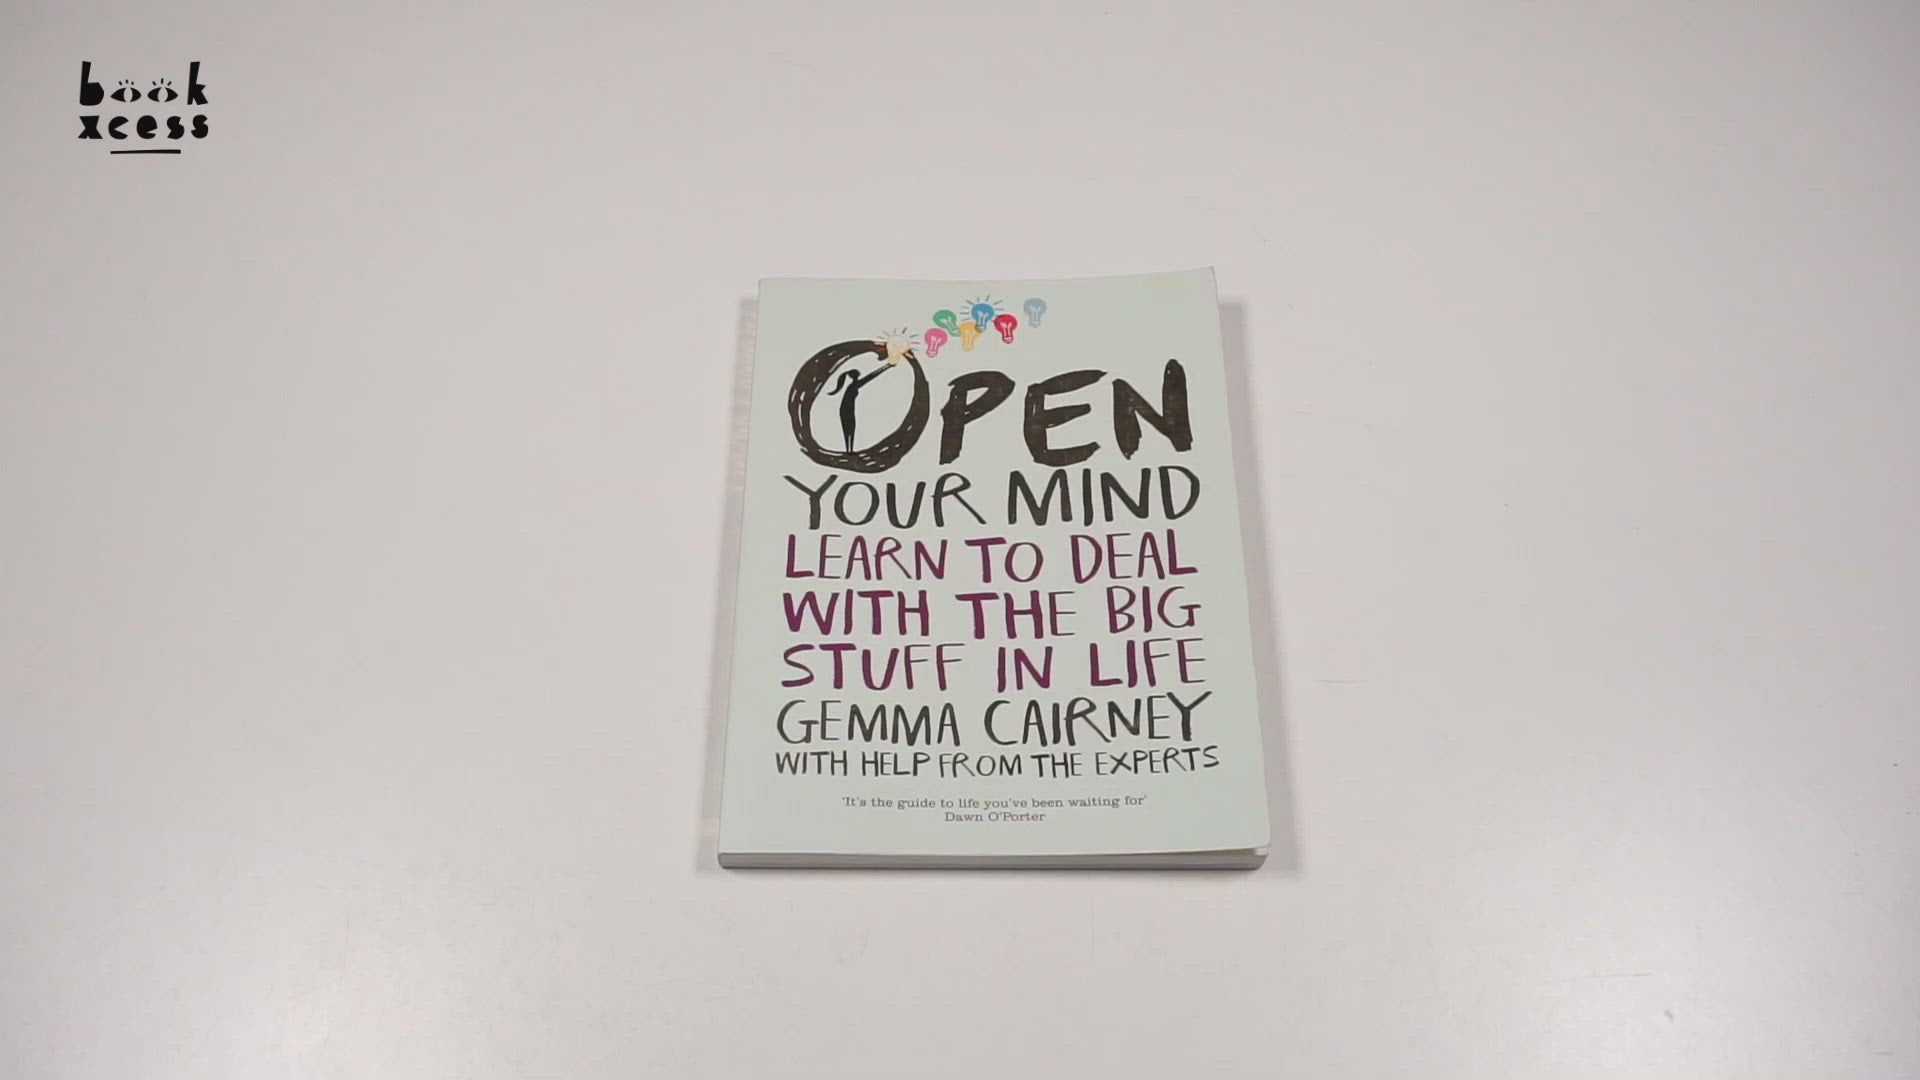 book
xcess
OPEN
YOUR MIND
LEARN TO DEAL
WITH THE BIG
STUFF IN LIFE
GEMMA CAIRNEY
WITH HELP FROM THE EXPERTS
'It's the guide to life you've been waiting for'
Dawn O'Porter